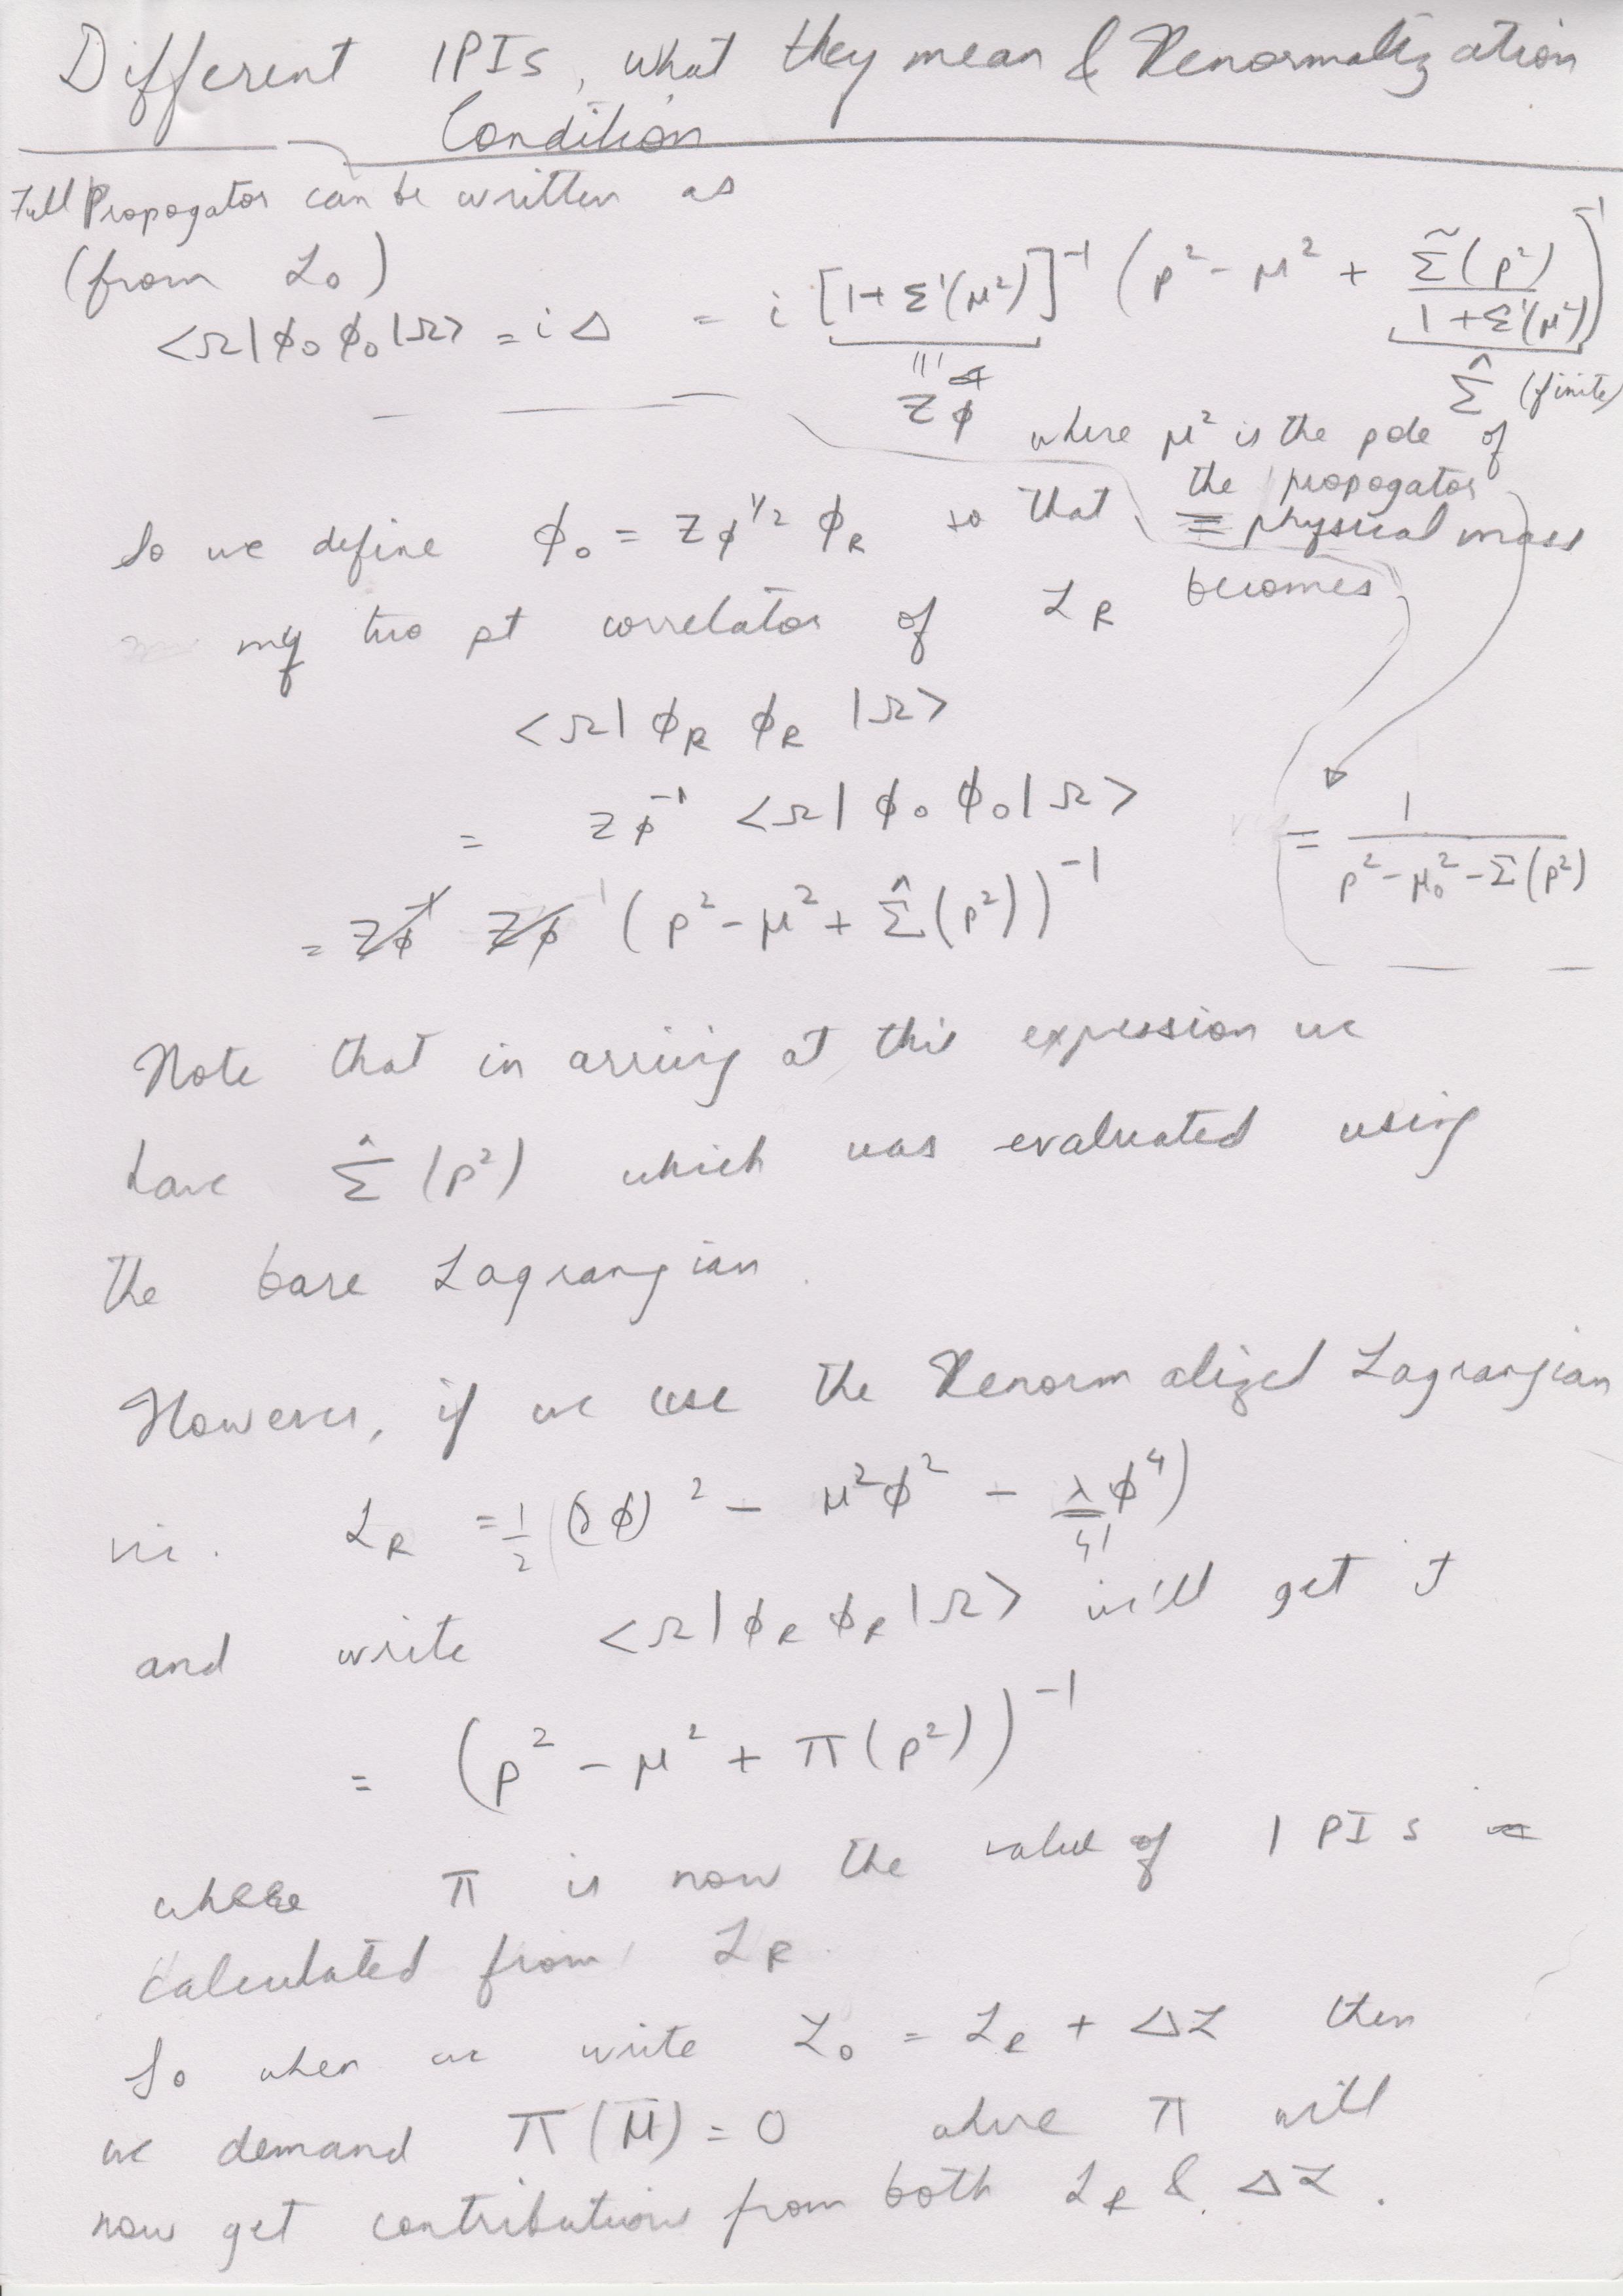 Different 1PIs, what they mean & Renormalization
Condition
Full Propogator can be written as
(from ℒ₀)
<Ω|ϕ₀ ϕ₀|Ω> = iΔ = i [1+Σ'(μ²)]⁻¹ (p² - μ² + Σ̃(p²)/(1+Σ'(μ²)))⁻¹
Zϕ
Σ̂ (finite)
where μ² is the pole of
the propogator
≡ physical mass
So we define ϕ₀ = Zϕ^1/2 ϕ_R so that
my two pt correlator of ℒ_R becomes
<Ω| ϕ_R ϕ_R |Ω>
= Zϕ⁻¹ <Ω| ϕ₀ ϕ₀|Ω>
= 1/(p² - μ₀² - Σ(p²))
= Zϕ⁻¹ Zϕ (p² - μ² + Σ̂(p²))⁻¹
Note that in arriving at this expression we
have Σ̂(p²) which was evaluated using
the bare Lagrangian.
However, if we use the Renormalized Lagrangian
viz. ℒ_R = 1/2 ((∂ϕ)² - μ²ϕ² - λ/4! ϕ⁴)
and write <Ω|ϕ_R ϕ_R|Ω> will get it
= (p² - μ² + π(p²))⁻¹
where π is now the value of 1PIs
calculated from ℒ_R.
So when we write ℒ₀ = ℒ_R + Δℒ then
we demand π(μ̄) = 0 where π will
now get contributions from both ℒ_R & Δℒ.